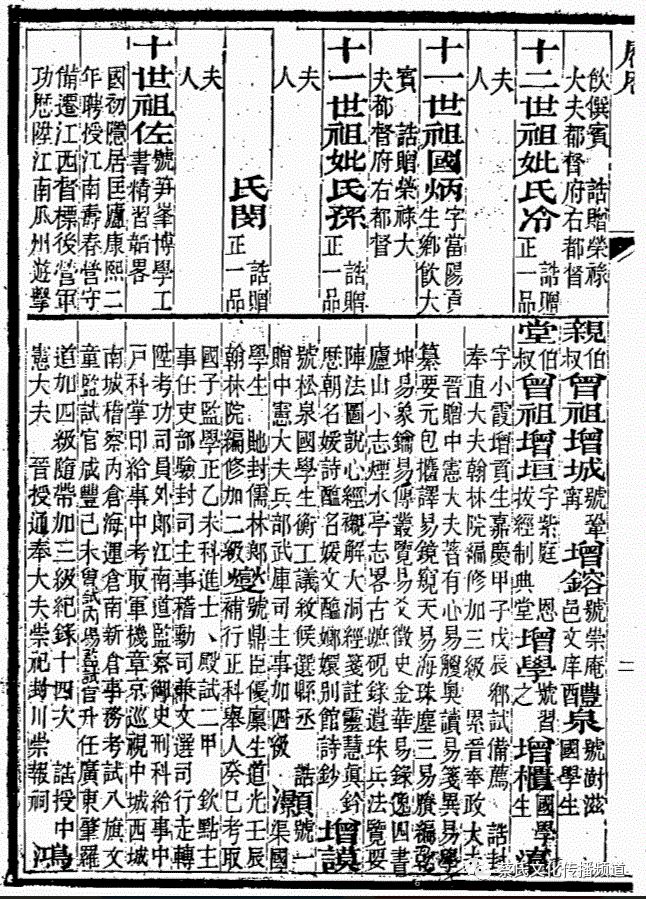 飲僎賓 誥贈榮祿
大夫都督府右都督
十二世祖妣氏冷 誥贈
正一品
夫
人
十一世祖國炳 字當陽貢
生鄉飲大
賓 誥贈榮祿大
夫都督府右都督
十一世祖妣氏孫 誥贈
正一品
夫
人
氏閔 誥贈
正一品
夫
人
十世祖佐 號笋峯博學工
書精習韜畧
國初隱居匡廬康熙二
年聘授江南壽春營守
備遷江西督標後營軍
功歷陞江南瓜州遊擊
親伯叔曾祖增城 號鞏
甯 增鎔 號崇庵
邑文庠 醴泉 號樹滋
國學生
堂伯叔曾祖增垣 字紫庭 恩
拔經制典 堂 增學 號習
之 增櫃 國學
生 濬
字小霞增貢生嘉慶甲子戊辰鄉試備薦 誥封
奉直大夫翰林院編修加三級 累晉奉政大夫
晉贈中憲大夫著有心易觸奧讀易箋異易學
纂要元包攟譯易鏡窺天易海珠塵三易賸編乾
坤易象鑰易傳叢覽易爻徵史金華易錄逸四書
廬山小志煙水亭志畧古蹠硯錄遺珠兵法覽要
陣法圖說心經襯解大洞經箋註靈慧真鈐
歷朝名媛詩醢名媛文醢嫏嬛別館詩鈔 增謨
號松泉國學生衛工議敘候選縣丞 誥
贈中憲大夫兵部武庫司主事加四級 灝 渠國
學生 貤封儒林郎
翰林院編修加二級 燮 號鼎臣優廩生道光壬辰
補行正科舉人癸巳考取
國子監學正乙未科進士、殿試二甲 欽點主
事任吏部驗封司主事稽勳司兼文選司行走轉
陞考功司員外郎江南道監察御史刑科給事中
戶科掌印給事中考取軍機章京巡視中城西城
南城稽察內倉海運倉南新倉事務考試八旗文
童監試官咸豐己未會試內場監試官升任廣東肇羅
道加四級隨帶加三級紀錄十四次 誥授中
憲大夫 晉授通奉大夫崇祀封川崇報祠 鴻
二
蔡氏文化传播频道